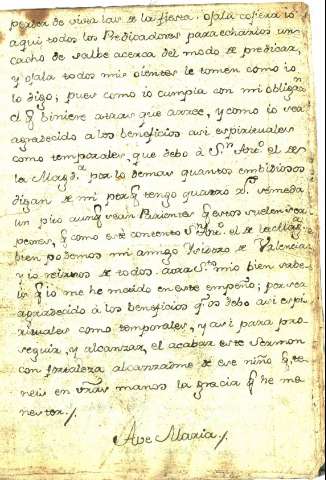 perder de vivir las de la fiesta. ojala cojiera io
aqui todos los Predicadores para echarlos un
cacho de salbe acerca del modo de predicar,
y ojala todos mis oientes lo tomen como io
lo digo; pues como io cumpla con mi obligan
el q biniere atras que arree, y como io sea
agradecido a los beneficios asi espirituales
como temporales, que debo à Sn Anto el de
la Magda por lo demas quantos embidiosos
digan de mi porq tengo quatro rs se me da
un pito aunq sean Parientes q estos suelen ser
peores, q como este contento Sn Anto el de la Maga
bien podemos mi amigo de Valencia
y io reirnos de todos. Santo mio bien sabe
is q io me he metido en este empeño; por ser
agradecido à los beneficios q os debo asi espi
rituales como temporales, y asi para pro
seguir, y alcanzar, el acabar este Sermon
con fortaleza alcanzadme de ese niño q te
neis en vras manos la gracia q he me
nester./
Ave Maria./